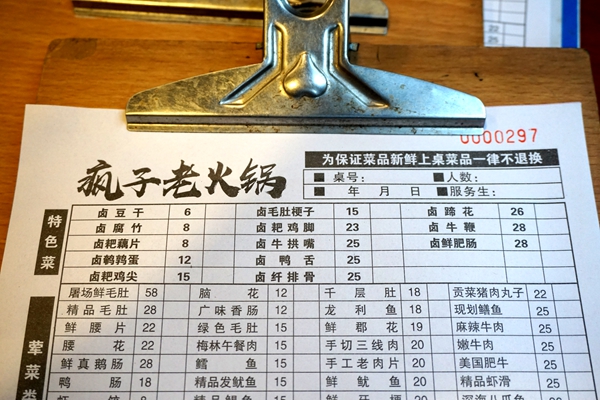 22
25
0000297
疯子老火锅
为保证菜品新鲜上桌菜品一律不退换
桌号: 人数:
年 月 日 服务生:
特色菜
卤豆干 6 卤毛肚梗子 15 卤蹄花 26
卤腐竹 8 卤耙鸡脚 23 卤牛鞭 28
卤耙藕片 8 卤牛拱嘴 25 卤鲜肥肠 28
卤鹌鹑蛋 12 卤鸭舌 25
卤耙鸡尖 15 卤纤排骨 25
荤菜类
屠场鲜毛肚 58 脑花 12 千层肚 18 贡菜猪肉丸子 22
精品毛肚 28 广味香肠 12 龙利鱼 18 现划鳝鱼 25
鲜腰片 22 绿色毛肚 15 鲜郡花 19 麻辣牛肉 25
腰花 22 梅林午餐肉 15 手切三线肉 20 嫩牛肉 25
鲜真鹅肠 28 鳕鱼 15 手工老肉片 20 美国肥牛 25
鸭肠 18 精品发鱿鱼 15 鲜鱿鱼 20 精品虾滑 25
15 20 25